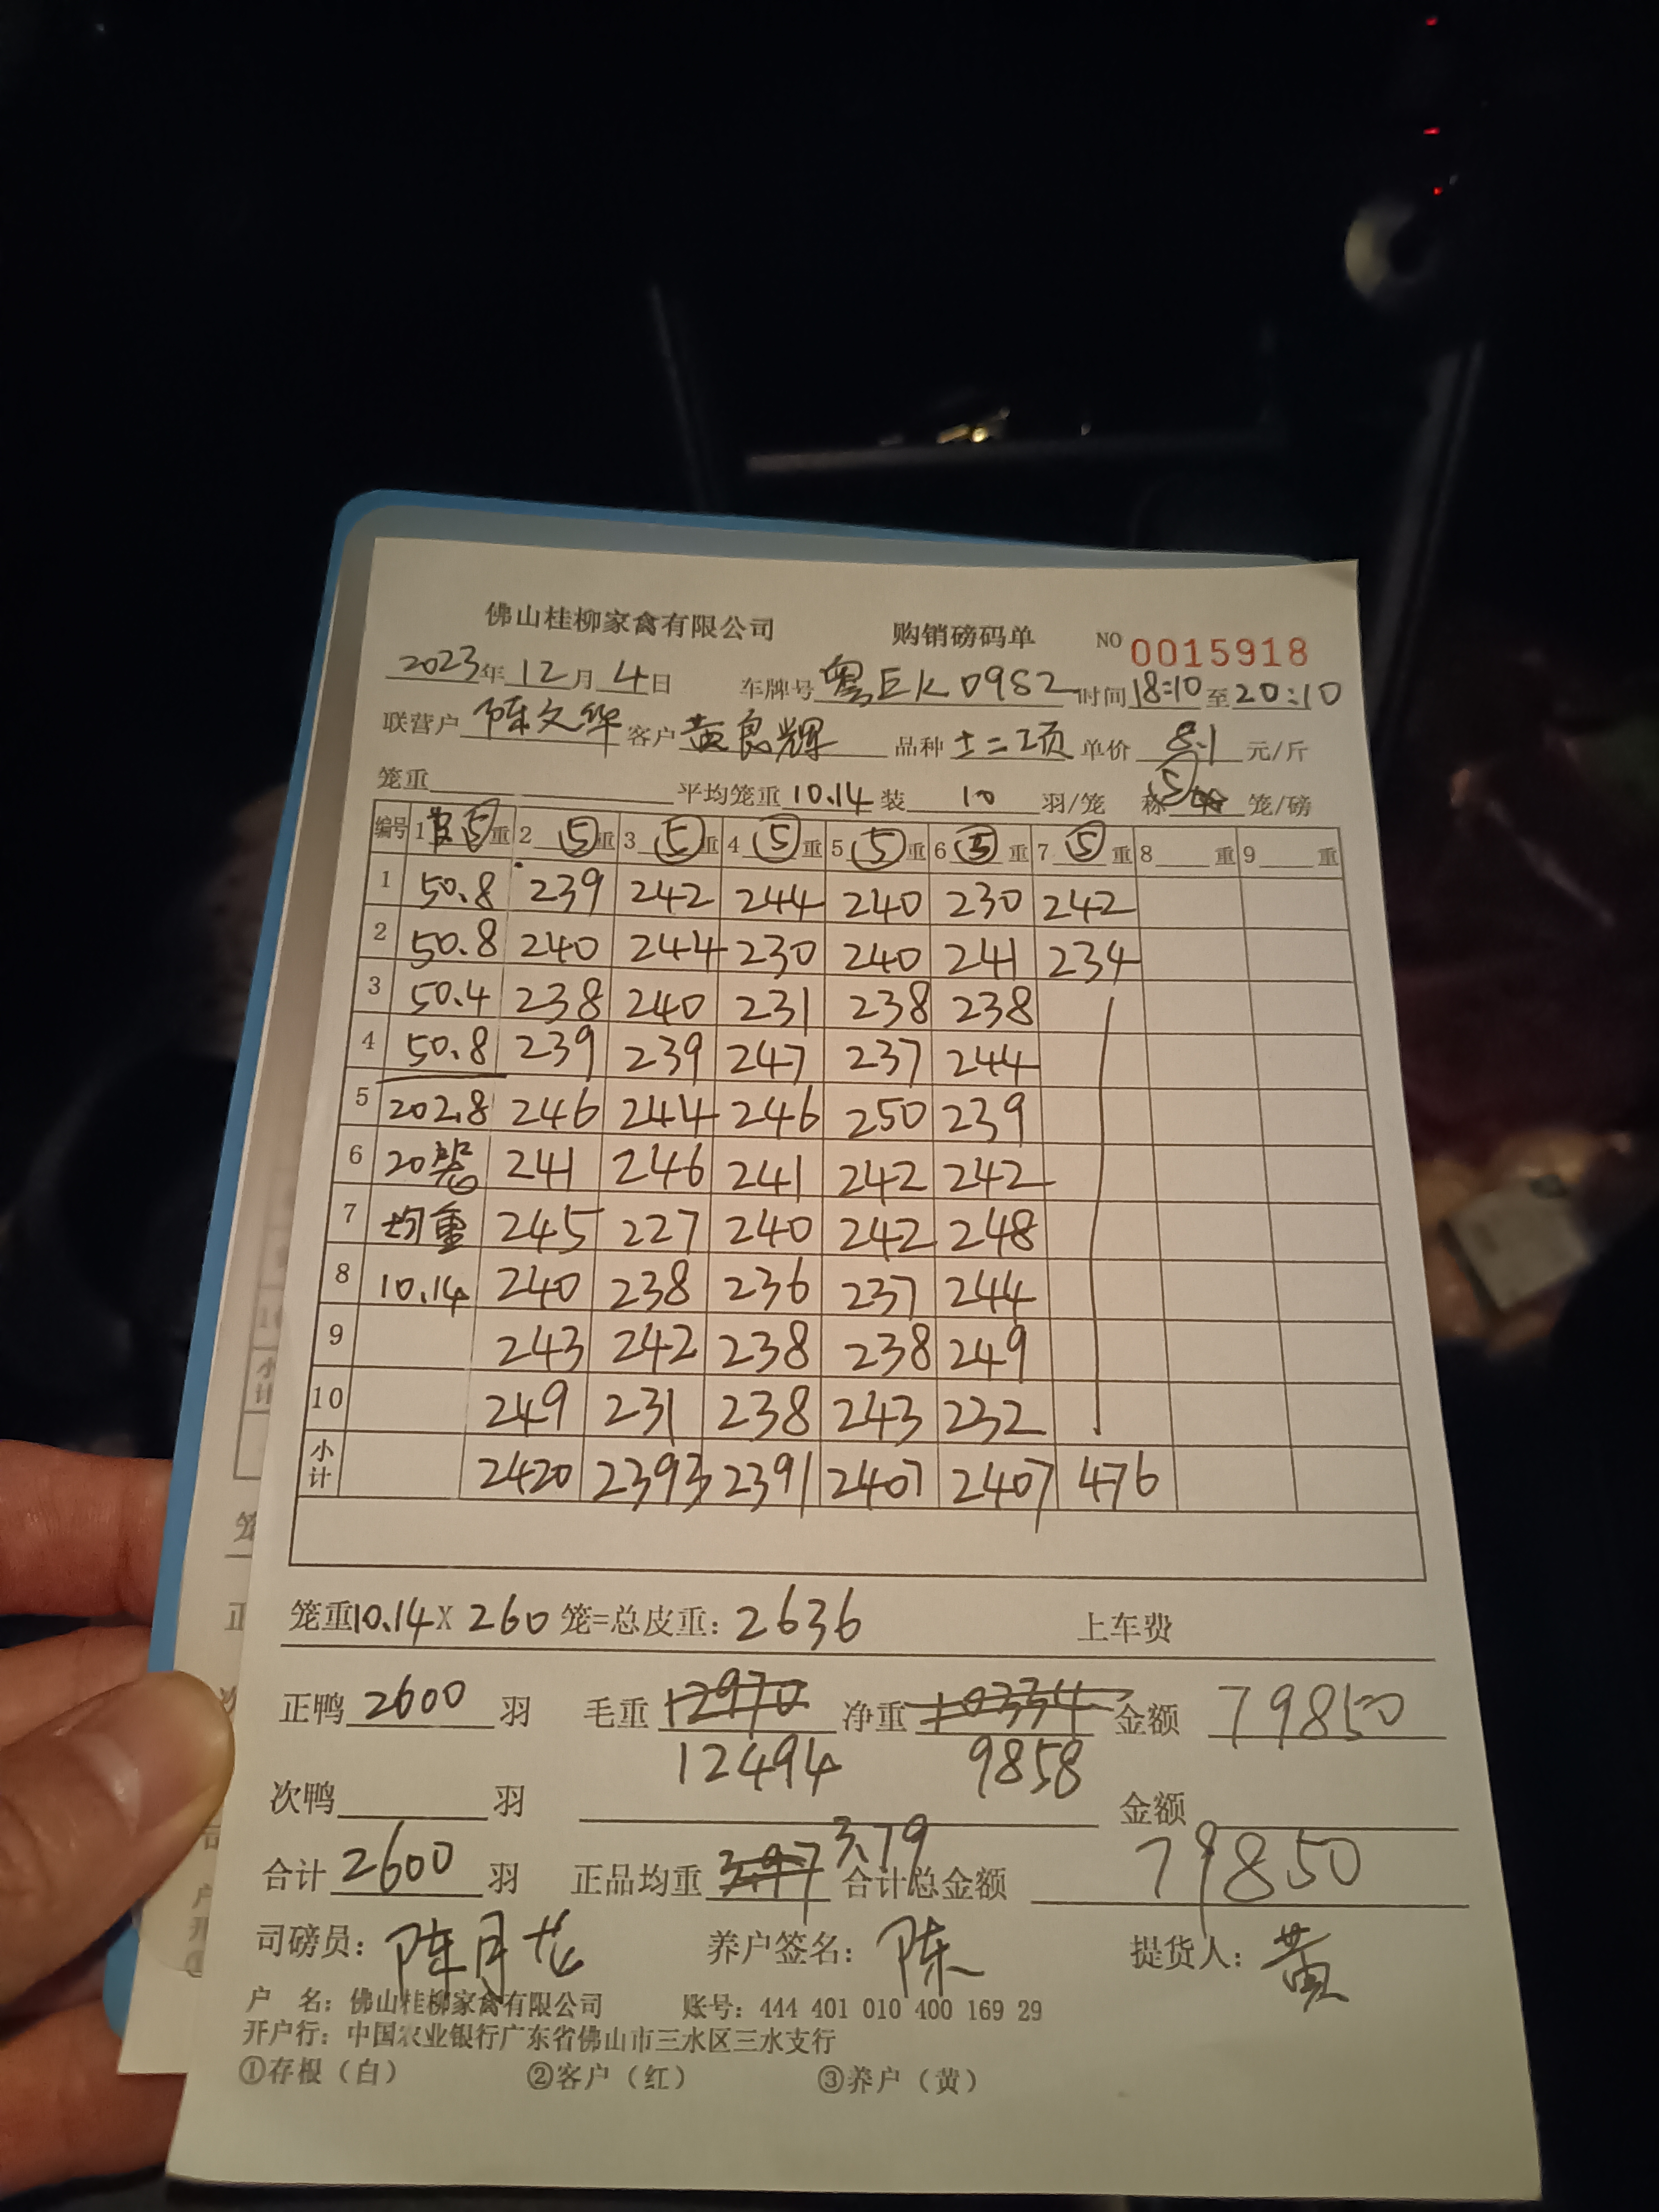 佛山桂柳家禽有限公司 购销磅码单 NO 0015918
2023年12月4日 车牌号粤EK0982 时间18:10至20:10
联营户陈文华 客户黄良辉 品种土二项 单价8.1元/斤
笼重 平均笼重10.14装10羽/笼 称⑤笼/磅
编号 1⑤重 2⑤重 3⑤重 4⑤重 5⑤重 6⑤重 7⑤重 8重 9重
1 50.8 239 242 244 240 230 242
2 50.8 240 244 230 240 241 234
3 50.4 238 240 231 238 238
4 50.8 239 239 247 237 244
5 202.8 246 244 246 250 239
6 20笼 241 246 241 242 242
7 均重 245 227 240 242 248
8 10.14 240 238 236 237 244
9 243 242 238 238 249
10 249 231 238 243 232
小计 2420 2393 2391 2407 2407 476
笼重10.14X260笼=总皮重：2636 上车费
正鸭2600羽 毛重12970 净重10334 金额79850
12494 9858
次鸭 羽 金额
合计2600羽 正品均重3.97 3.79 合计总金额79850
司磅员：陈月龙 养户签名：陈 提货人：黄
户 名：佛山桂柳家禽有限公司 账号：444 401 010 400 169 29
开户行：中国农业银行广东省佛山市三水区三水支行
①存根（白） ②客户（红） ③养户（黄）